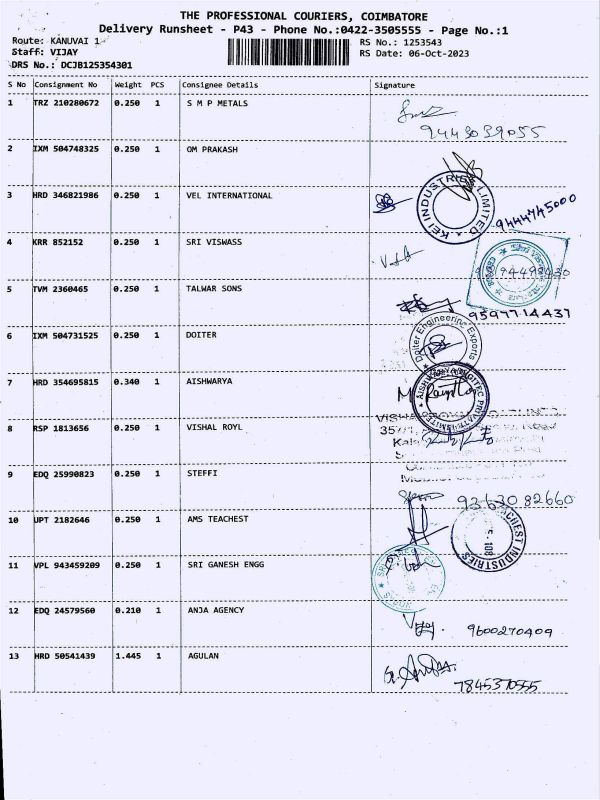 THE PROFESSIONAL COURIERS, COIMBATORE
Delivery Runsheet - P43 - Phone No.:0422-3505555 - Page No.:1
Route: KANUVAI 1
RS No.: 1253543
Staff: VIJAY
RS Date: 06-Oct-2023
DRS No.: DCJB125354301
S No Consignment No Weight PCS Consignee Details Signature
1 TRZ 210280672 0.250 1 S M P METALS
9443039055
2 IXM 504748325 0.250 1 OM PRAKASH
3 HRD 346821986 0.250 1 VEL INTERNATIONAL
KEI INDUSTRIES LIMITED
9444745000
4 KRR 852152 0.250 1 SRI VISWASS
5 TVM 2360465 0.250 1 TALWAR SONS
9597714437
6 IXM 504731525 0.250 1 DOITER
Doiter Engineering Exports
7 HRD 354695815 0.340 1 AISHWARYA
8 RSP 1813656 0.250 1 VISHAL ROYL
9 EDQ 25990823 0.250 1 STEFFI
9363082660
10 UPT 2182646 0.250 1 AMS TEACHEST
INDUSTRIES
11 VPL 943459209 0.250 1 SRI GANESH ENGG
12 EDQ 24579560 0.210 1 ANJA AGENCY
9600270409
13 HRD 50541439 1.445 1 AGULAN
7845370555